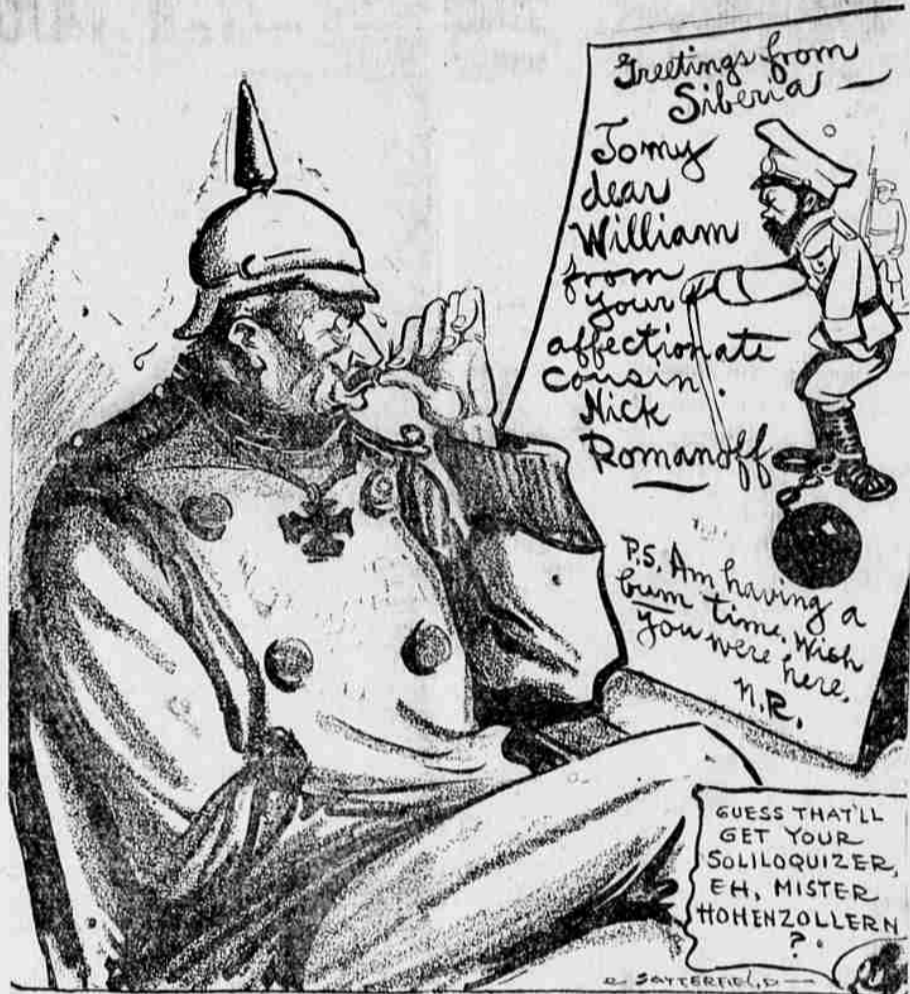 Greetings from
Siberia —
To my
dear
William
from
your
affectionate
cousin.
Nick
Romanoff
P.S. Am having a
bum time. Wish
you were here.
N.R.
GUESS THAT'LL
GET YOUR
SOLILOQUIZER,
EH, MISTER
HOHENZOLLERN
?.
SATTERFIELD —